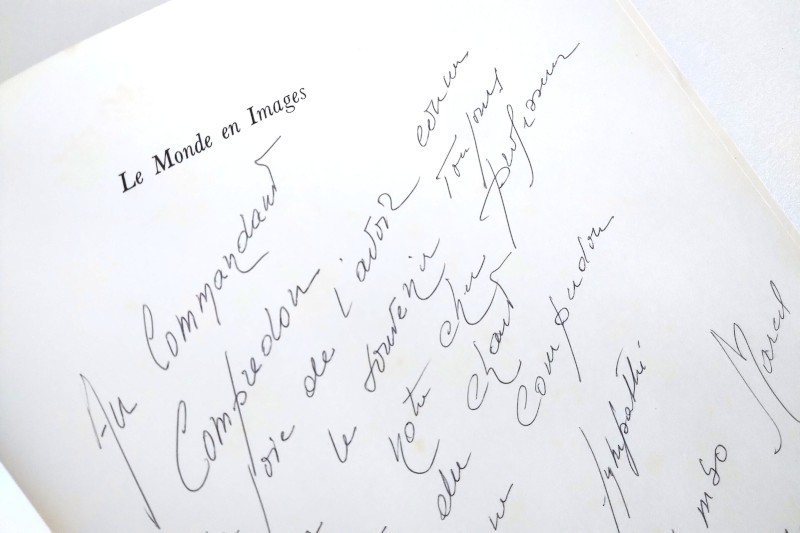 Le Monde en Images
Au Commandant
Compredon
joie de l'avoir connu
le souvenir toujours
notre cher professeur
du chant
Compredon
sympathie
mso Marcel